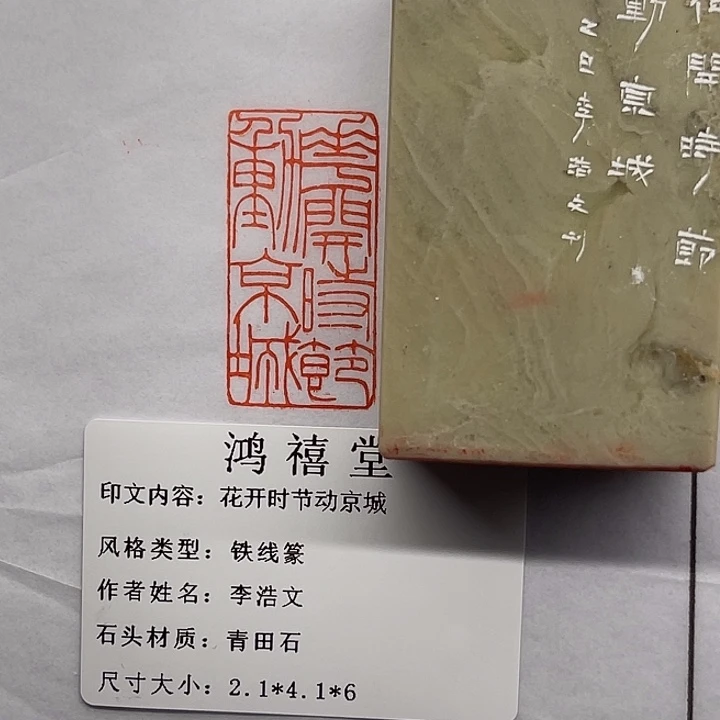 花開時節
動京城
花開時節
動京城
乙巳李浩文刊
鸿禧堂
印文内容：花开时节动京城
风格类型：铁线篆
作者姓名：李浩文
石头材质：青田石
尺寸大小：2.1*4.1*6